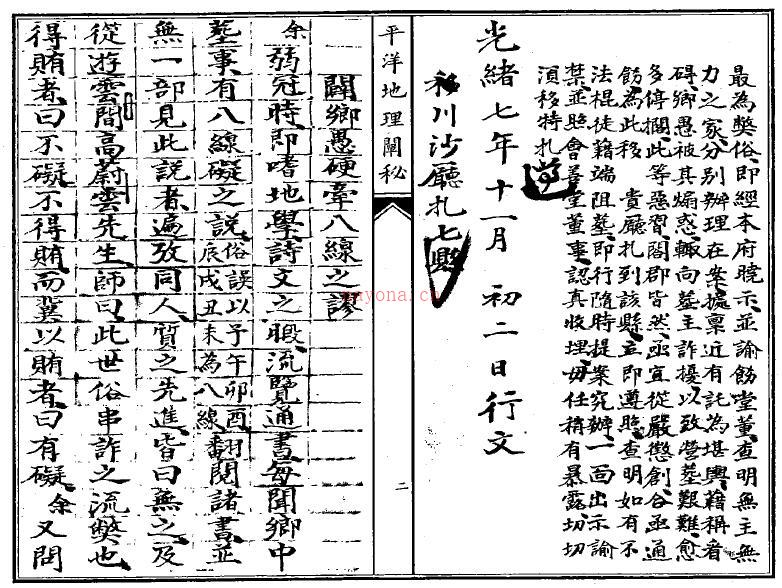 最為獘俗即經本府曉示並諭飭堂董查明無主無
力之家分別辦理在案據稟近有託為堪輿藉稱者
碍鄉愚被其煽惑輙向墓主詐擾以致營墓艱難愈
多停擱此等惡習閤郡皆然亟宜從嚴懲創合亟通
飭為此移 貴廳扎到該縣立即遵照查明如有不
法棍徒藉端阻墓即行隨時提案究辦一面出示諭
禁並照會善堂董事認真收埋毋任稍有暴露切切
須移特扎
光緒七年十一月 初二日行文
移川沙廳扎七縣
平洋地理闡秘
二
闢鄉愚硬牽八線之謬
余弱冠時即嗜地學詩文之暇流覽通書每聞鄉中
塟事有八線礙之說俗誤以子午卯酉辰戌丑未為八線翻閱諸書並
無一部見此說者遍攷同人質之先進皆曰無之及
從遊雲間高蔚雲先生師曰此世俗串詐之流獘也
得賄者曰不礙不得賄而冀以賄者曰有礙余又問
nayona.cn